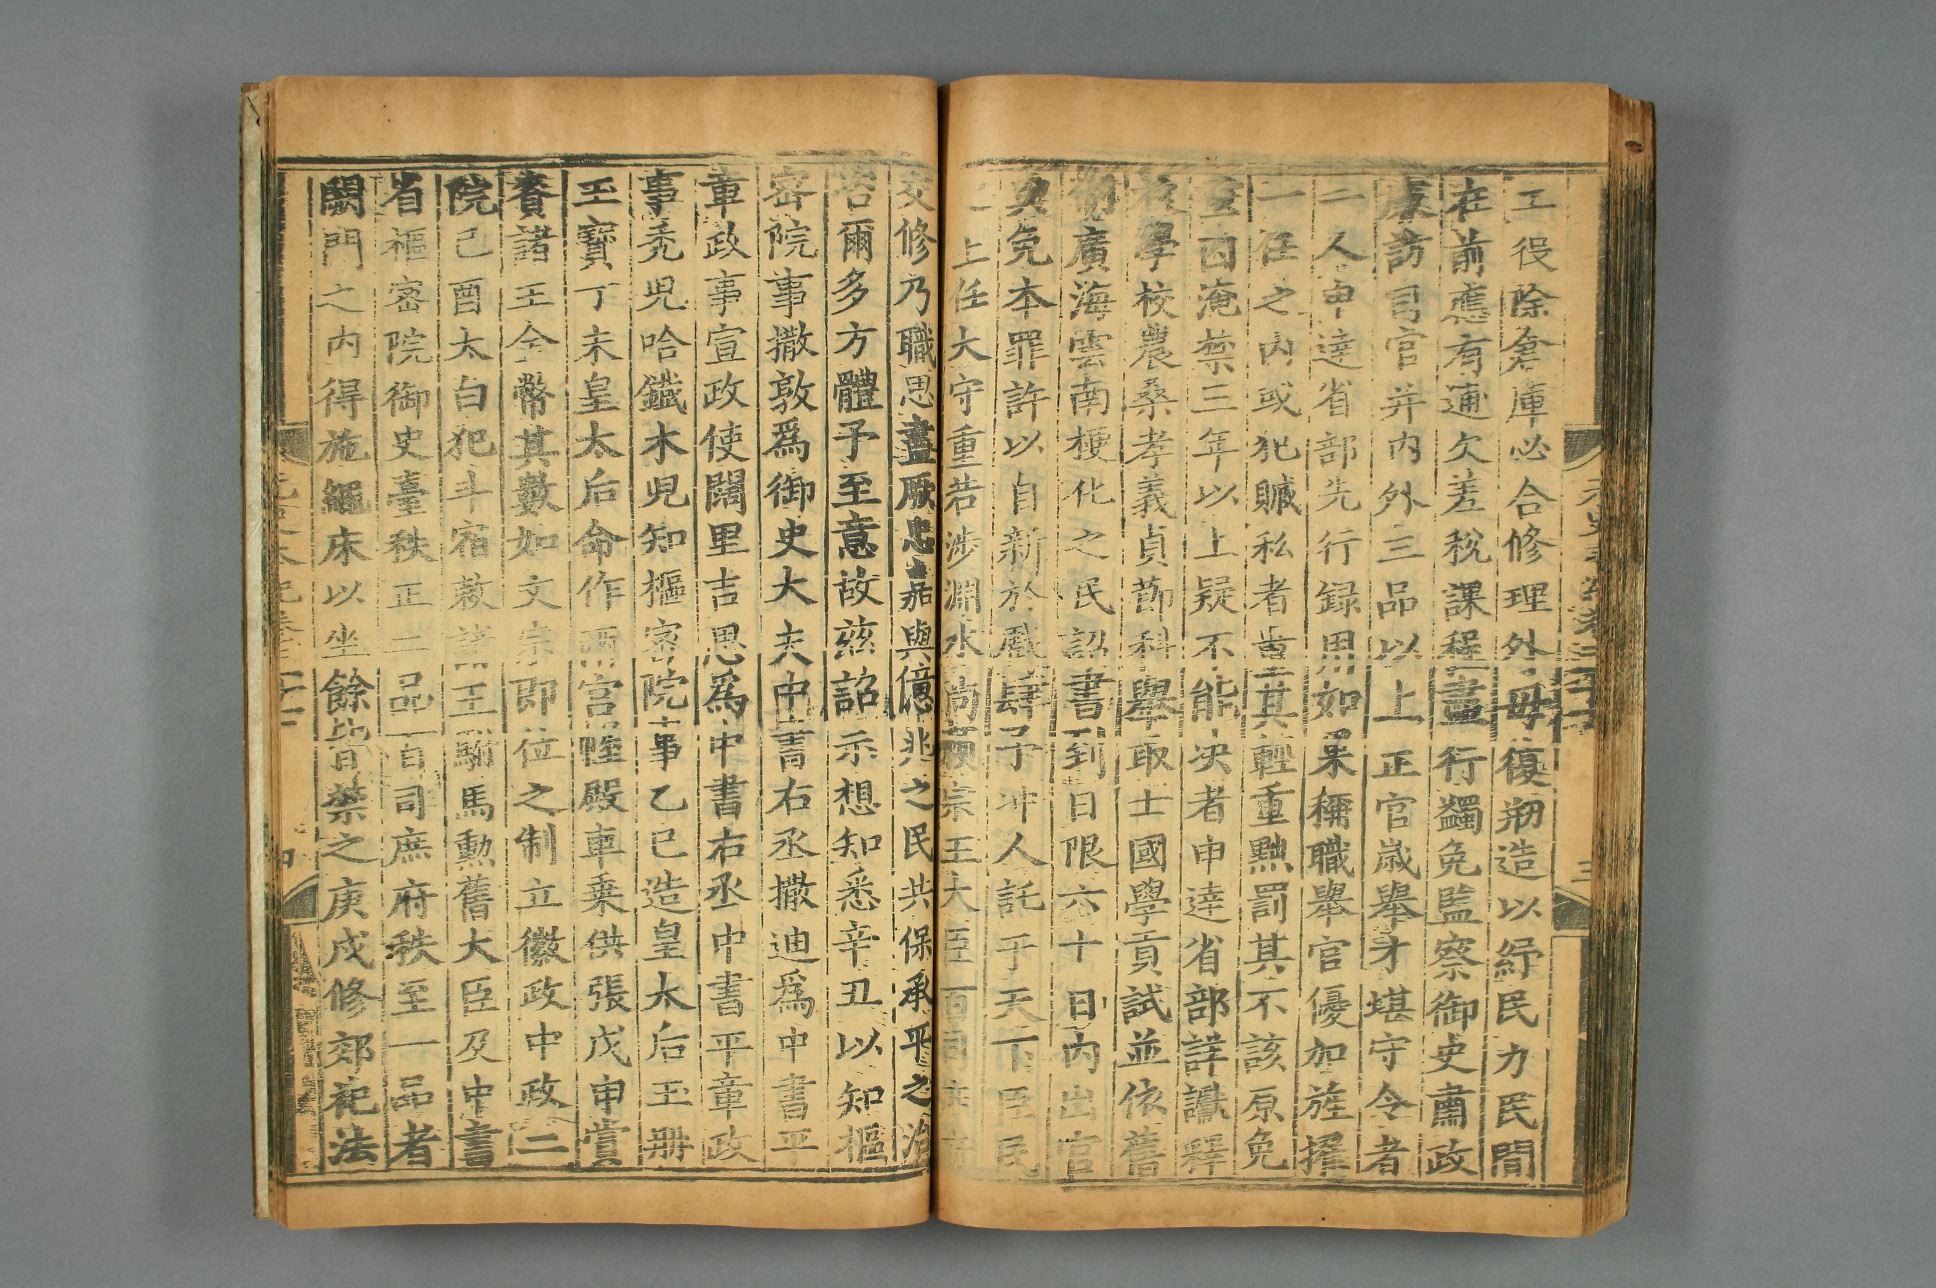 工役除倉庫必合修理外毋復刱造以紓民力民間
在前應有逋欠差稅課程盡行蠲免監察御史肅政
廉訪司官并內外三品以上正官歲舉才堪守令者
一人申達省部先行録用如果稱職舉官優加旌擢
一任之內或犯贓私者量其輕重黜罰其不該原免
重囚淹禁三年以上疑不能决者申達省部詳讞釋
學校農桑孝義貞節科舉取士國學貢試並依舊
廣海雲南梗化之民詔書到日限六十日內出官
與免本罪許以自新於戲肆予冲人託于天下臣民
之上任大守重若涉淵水尚賴宗王大臣百司庶
交修乃職思盡厥忠嘉與億兆之民共保承平之治
咨爾多方體予至意故茲詔示想知悉辛丑以知樞
密院事撒敦爲御史大夫中書右丞撒迪爲中書平
章政事宣政使闊里吉思爲中書右丞中書平章政
事禿兒哈鐵木兒知樞密院事乙巳造皇太后玉册
玉寶丁未皇太后命作兩宮幄殿車乗供張戊申賞
賚諸王金幣其數如文宗即位之制立徽政中政二
院己酉太白犯斗宿敕諸王駙馬勲舊大臣及中書
省樞密院御史臺秩正二品百司庶府秩至一品者
闕門之內得施繩床以坐餘皆禁之庚戌修郊祀法